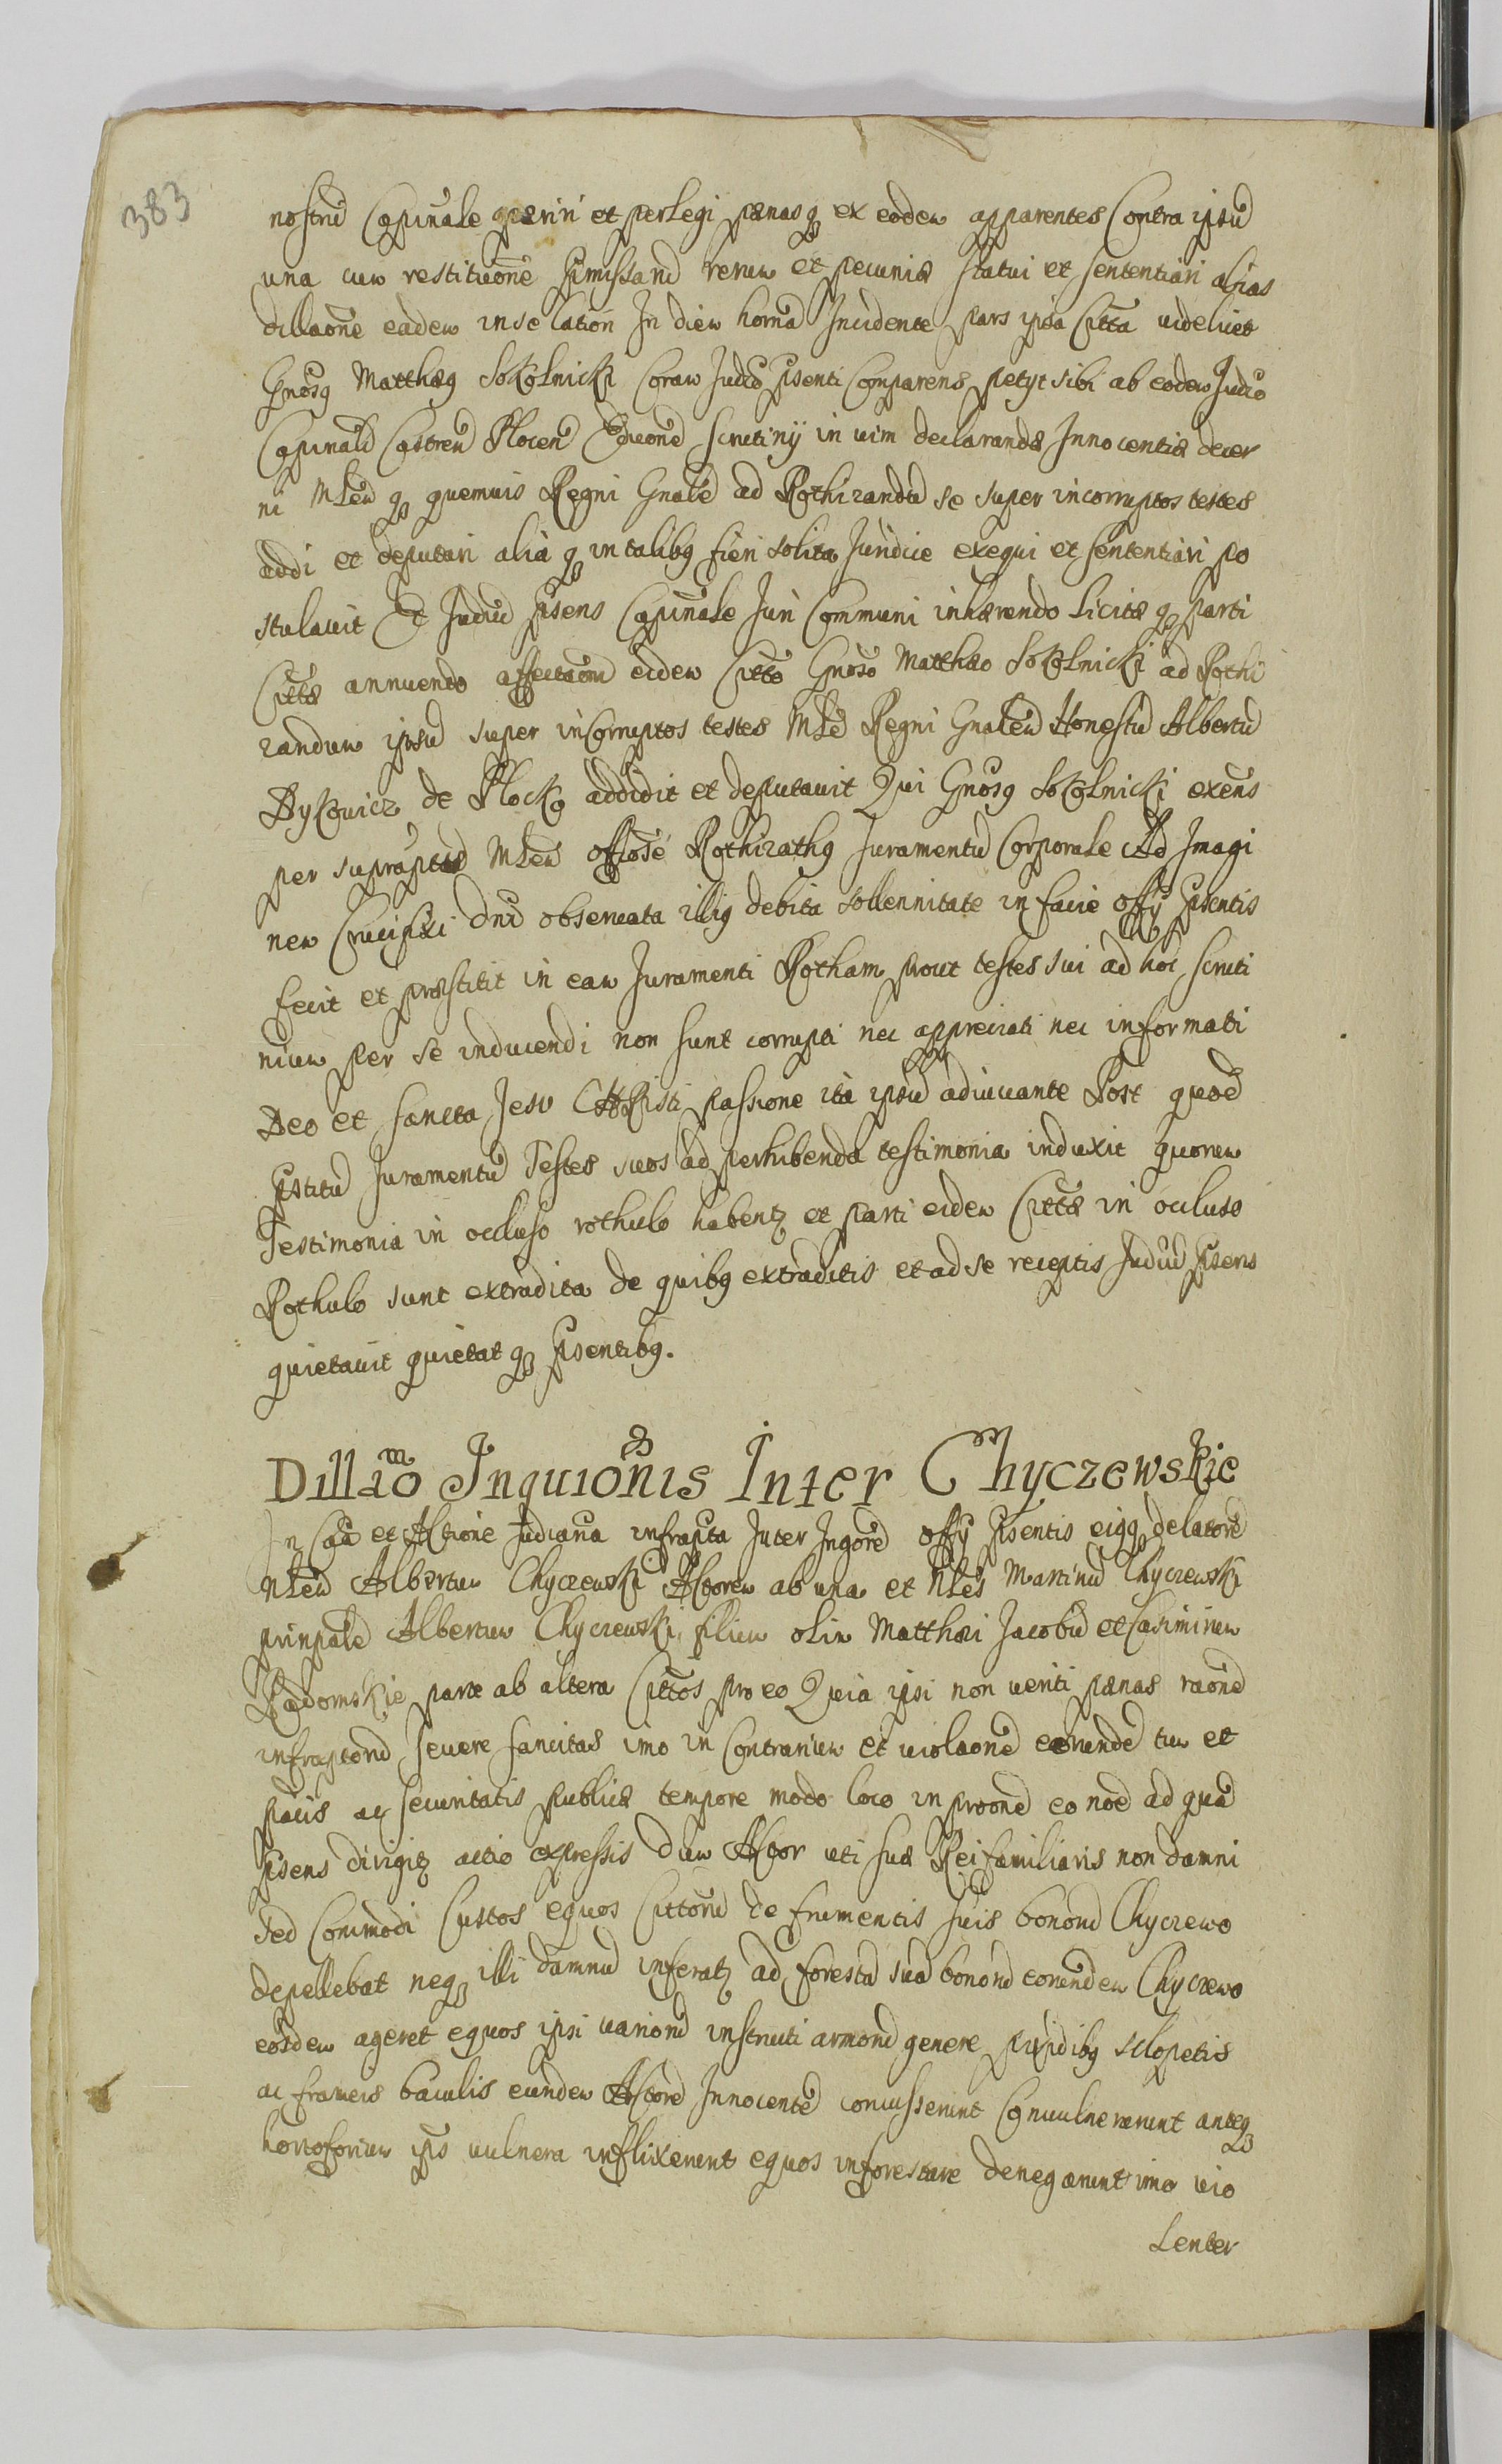 383
nostrũ Capĩnale aperiri et perlegi pænasq ex eodem apparentes Contra ipsũ
una cum restitutione pmissarũ rerum et pecuniæ statui et sententiari alias
dillaõne eadem in se lation In diem hornã Incidente pars ipsa Citta videlicet
Gnosq Matthæq Sokolnicki Coram Judõ pñsenti Comparens petyt sibi ab eodem Judõ
Capinali Castren Plocen scrutinij in vim declarandæ Innocentiæ decer
ni Mlem q quemvis Regni Gnalẽ ad Rothizandũ se super incorruptos testes
addi et deputari alia q in talibq fieri solita Juridice exequi et sententiari po
stulavit Et Judiũ pñsens Capinale Juri Communi inhærendo licitæ q parti
Cittæ annuendo affectaõni eidem Citto Gnoso Matthæo Sokolnicki ad Rothi
zandum ipsũ super inCorruptos testes Mlẽ Regni Gnalem Honestũ Albertũ
Bykowicz de Plocko addidit et deputavit Qui Gnosq Sokolnicki exẽns
per suprapttũ Mlem offiosẽ Rothizathq Juramentũ Corporale Ad Imagi
nem Crucifixi Dnĩ observata illiq debita sollennitate in facie offỹ pñsentis
fecit et præstitit in eam Juramenti Rotham prout testes sui ad hoc scruti
nium per se inducendi non sunt corrupti nec appreciati nec informati
Deo et sancta Jesu CHRisti passione ita ipsũ adiuvante Post quod
pstitũ Juramentũ Testes suos ad perhibenda testimonia induxit quorum
Testimonia in occluso rothulo habentq et parti eidem Cittæ in occluso
Rothulo sunt extradita de quibq extraditis et ad se receptis Judiũ pñsens
quietavit quietat q pñsentibq.
Dillão Inquiõnis Inter Chyczewskie
In Caã et Actione Judiciaria infrapta Inter Ingõrẽ offỹ pñsentis eiqq delatorẽ
Nlem Albertum Chyczewski Actorem ab una et Nles Martinũ Chyczewski
prinpalẽ Albertum Chyczewski filium olim Matthæi Jacobũ et Casimirum
Radomskie parte ab altera Cittos pro eo Quia ipsi non veriti pænas raõnẽ
infraptorũ severe sancitas imo in Contrarium et violaõnẽ eorundẽ tum et
pacis ac securitatis publicæ tempore modo loco in proõnẽ eo noẽ ad quã
pñsens dirigitq actio expressis dum Actor uti suæ Rei familiaris non damni
sed Commodi Custos equos Cittorũ de frumentis suis bonorũ Chyczewo
depellebat neq illi damnũ inferatq ad forestã suã bonorũ eorundem Chyczewo
eosdem ageret equos ipsi variorũ instructi armorũ genere pixidibq sclopetis
ac frameis baculis eundem Actorẽ Innocentẽ concusserunt Convulnerarunt anteq
hortoforium ips vulnera inflixerunt equos inforestare denegarunt imo vio
lenter